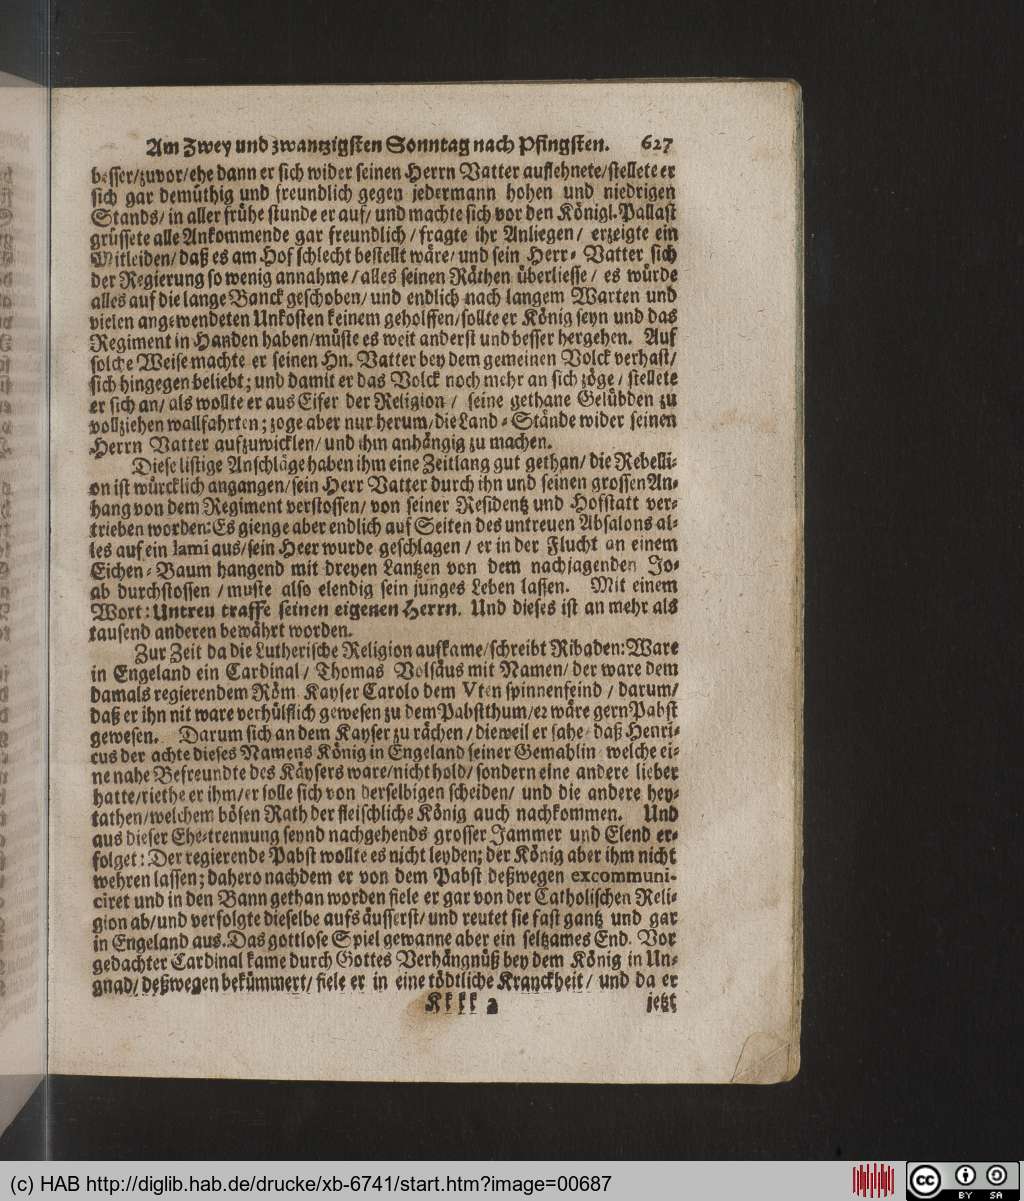 Am Zwey und zwantzigsten Sonntag nach Pfingsten. 627
besser/zuvor/ehe dann er sich wider seinen Herrn Vatter auflehnete/stellete er
sich gar demüthig und freundlich gegen jedermann hohen und niedrigen
Stands/ in aller frühe stunde er auf/ und machte sich vor den Königl. Pallast
grüssete alle Ankommende gar freundlich/ fragte ihr Anliegen/ erzeigte ein
Mitleiden/ daß es am Hof schlecht bestellt wäre/ und sein Herr- Vatter sich
der Regierung so wenig annahme/ alles seinen Räthen überliesse/ es würde
alles auf die lange Banck geschoben/ und endlich nach langem Warten und
vielen angewendeten Unkosten keinem geholffen/sollte er König seyn und das
Regiment in Handen haben/müste es weit anderst und besser hergehen. Auf
solche Weise machte er seinen Hn. Vatter bey dem gemeinen Volck verhast/
sich hingegen beliebt; und damit er das Volck noch mehr an sich zöge/ stellete
er sich an/ als wollte er aus Eifer der Religion/ seine gethane Gelübden zu
vollziehen wallfahrten; zoge aber nur herum/die Land-Stände wider seinen
Herrn Vatter aufzuwicklen/ und ihm anhängig zu machen.
Diese listige Anschläge haben ihm eine Zeitlang gut gethan/ die Rebelli-
on ist würcklich angangen/sein Herr Vatter durch ihn und seinen grossen An-
hang von dem Regiment verstossen/ von seiner Residentz und Hofstatt ver-
trieben worden: Es gienge aber endlich auf Seiten des untreuen Absalons al-
les auf ein lami aus/sein Heer wurde geschlagen/ er in der Flucht an einem
Eichen-Baum hangend mit dreyen Lantzen von dem nachjagenden Jo-
ab durchstossen/ muste also elendig sein junges Leben lassen. Mit einem
Wort: Untreu traffe seinen eigenen Herrn. Und dieses ist an mehr als
tausend anderen bewährt worden.
Zur Zeit da die Lutherische Religion aufkame/schreibt Ribaden: Ware
in Engeland ein Cardinal/ Thomas Volsäus mit Namen/ der ware dem
damals regierendem Röm. Kayser Carolo dem Vten spinnenfeind/ darum/
daß er ihn nit ware verhülflich gewesen zu dem Pabstthum/er wäre gern Pabst
gewesen. Darum sich an dem Kayser zu rächen/ dieweil er sahe daß Henri-
cus der achte dieses Namens König in Engeland seiner Gemahlin welche ei-
ne nahe Befreundte des Käysers ware/nicht hold/ sondern eine andere lieber
hatte/riethe er ihm/er solle sich von derselbigen scheiden/ und die andere hey-
rathen/welchem bösen Rath der fleischliche König auch nachkommen. Und
aus dieser Ehe-trennung seynd nachgehends grosser Jammer und Elend er-
folget: Der regierende Pabst wollte es nicht leyden; der König aber ihm nicht
wehren lassen; dahero nachdem er von dem Pabst deßwegen excommuni-
ciret und in den Bann gethan worden fiele er gar von der Catholischen Reli-
gion ab/und verfolgte dieselbe aufs äusserst/ und reutet sie fast gantz und gar
in Engeland aus. Das gottlose Spiel gewanne aber ein seltzames End. Vor
gedachter Cardinal kame durch Gottes Verhängnüß bey dem König in Un-
gnad/ deßwegen bekümmert/ fiele er in eine tödtliche Kranckheit/ und da er
Kkkk 2 jetzt
(c) HAB http://diglib.hab.de/drucke/xb-6741/start.htm?image=00687
cc BY SA